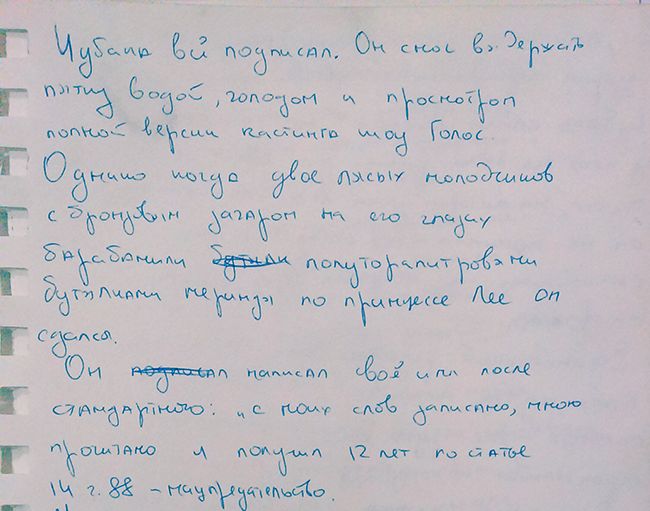 Чубака всё подписал. Он смог выдержать
пытку водой, голодом и просмотром
полной версии кастинга шоу Голос.
Однако когда двое лысых молодчиков
с бронзовым загаром на его глазах
барабанили бутылк полуторалитровыми
бутылками меринда по принцессе Лее он
сдался.
Он подписал написал своё имя после
стандартного: "с моих слов записано, мною
прочитано и получил 12 лет по статье
14 г. 88 - наупредательство.